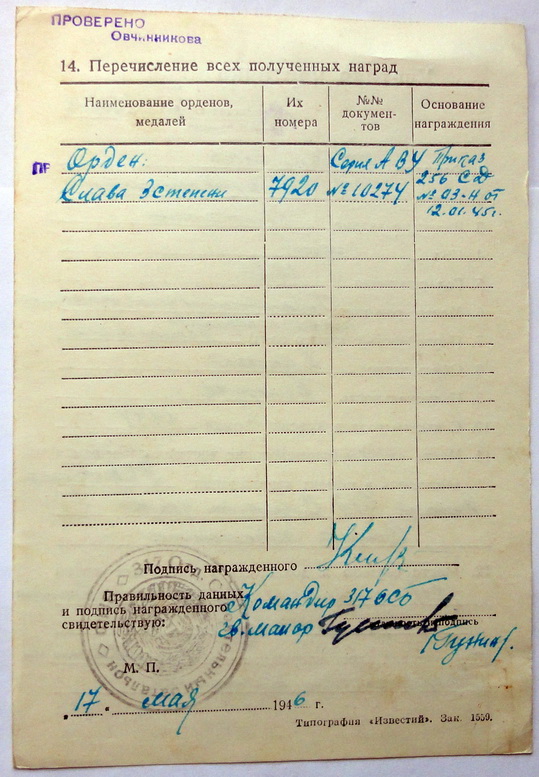 ПРОВЕРЕНО
Овчинникова
14. Перечисление всех полученных наград
Наименование орденов, медалей
Их номера
№№ докумен-тов
Основание награждения
ПР
Орден: Серия А ВУ Приказ
Слава 3степени 7920 № 10274 256 СД
№ 03-Н от
12.01.45г.
Подпись награжденного
Правильность данных
и подпись награжденного
свидетельствую:
Командир 317 ОСБ
гв. майор
подпись
М. П.
„17“ мая 1946 г.
Типография «Известий». Зак. 1559.